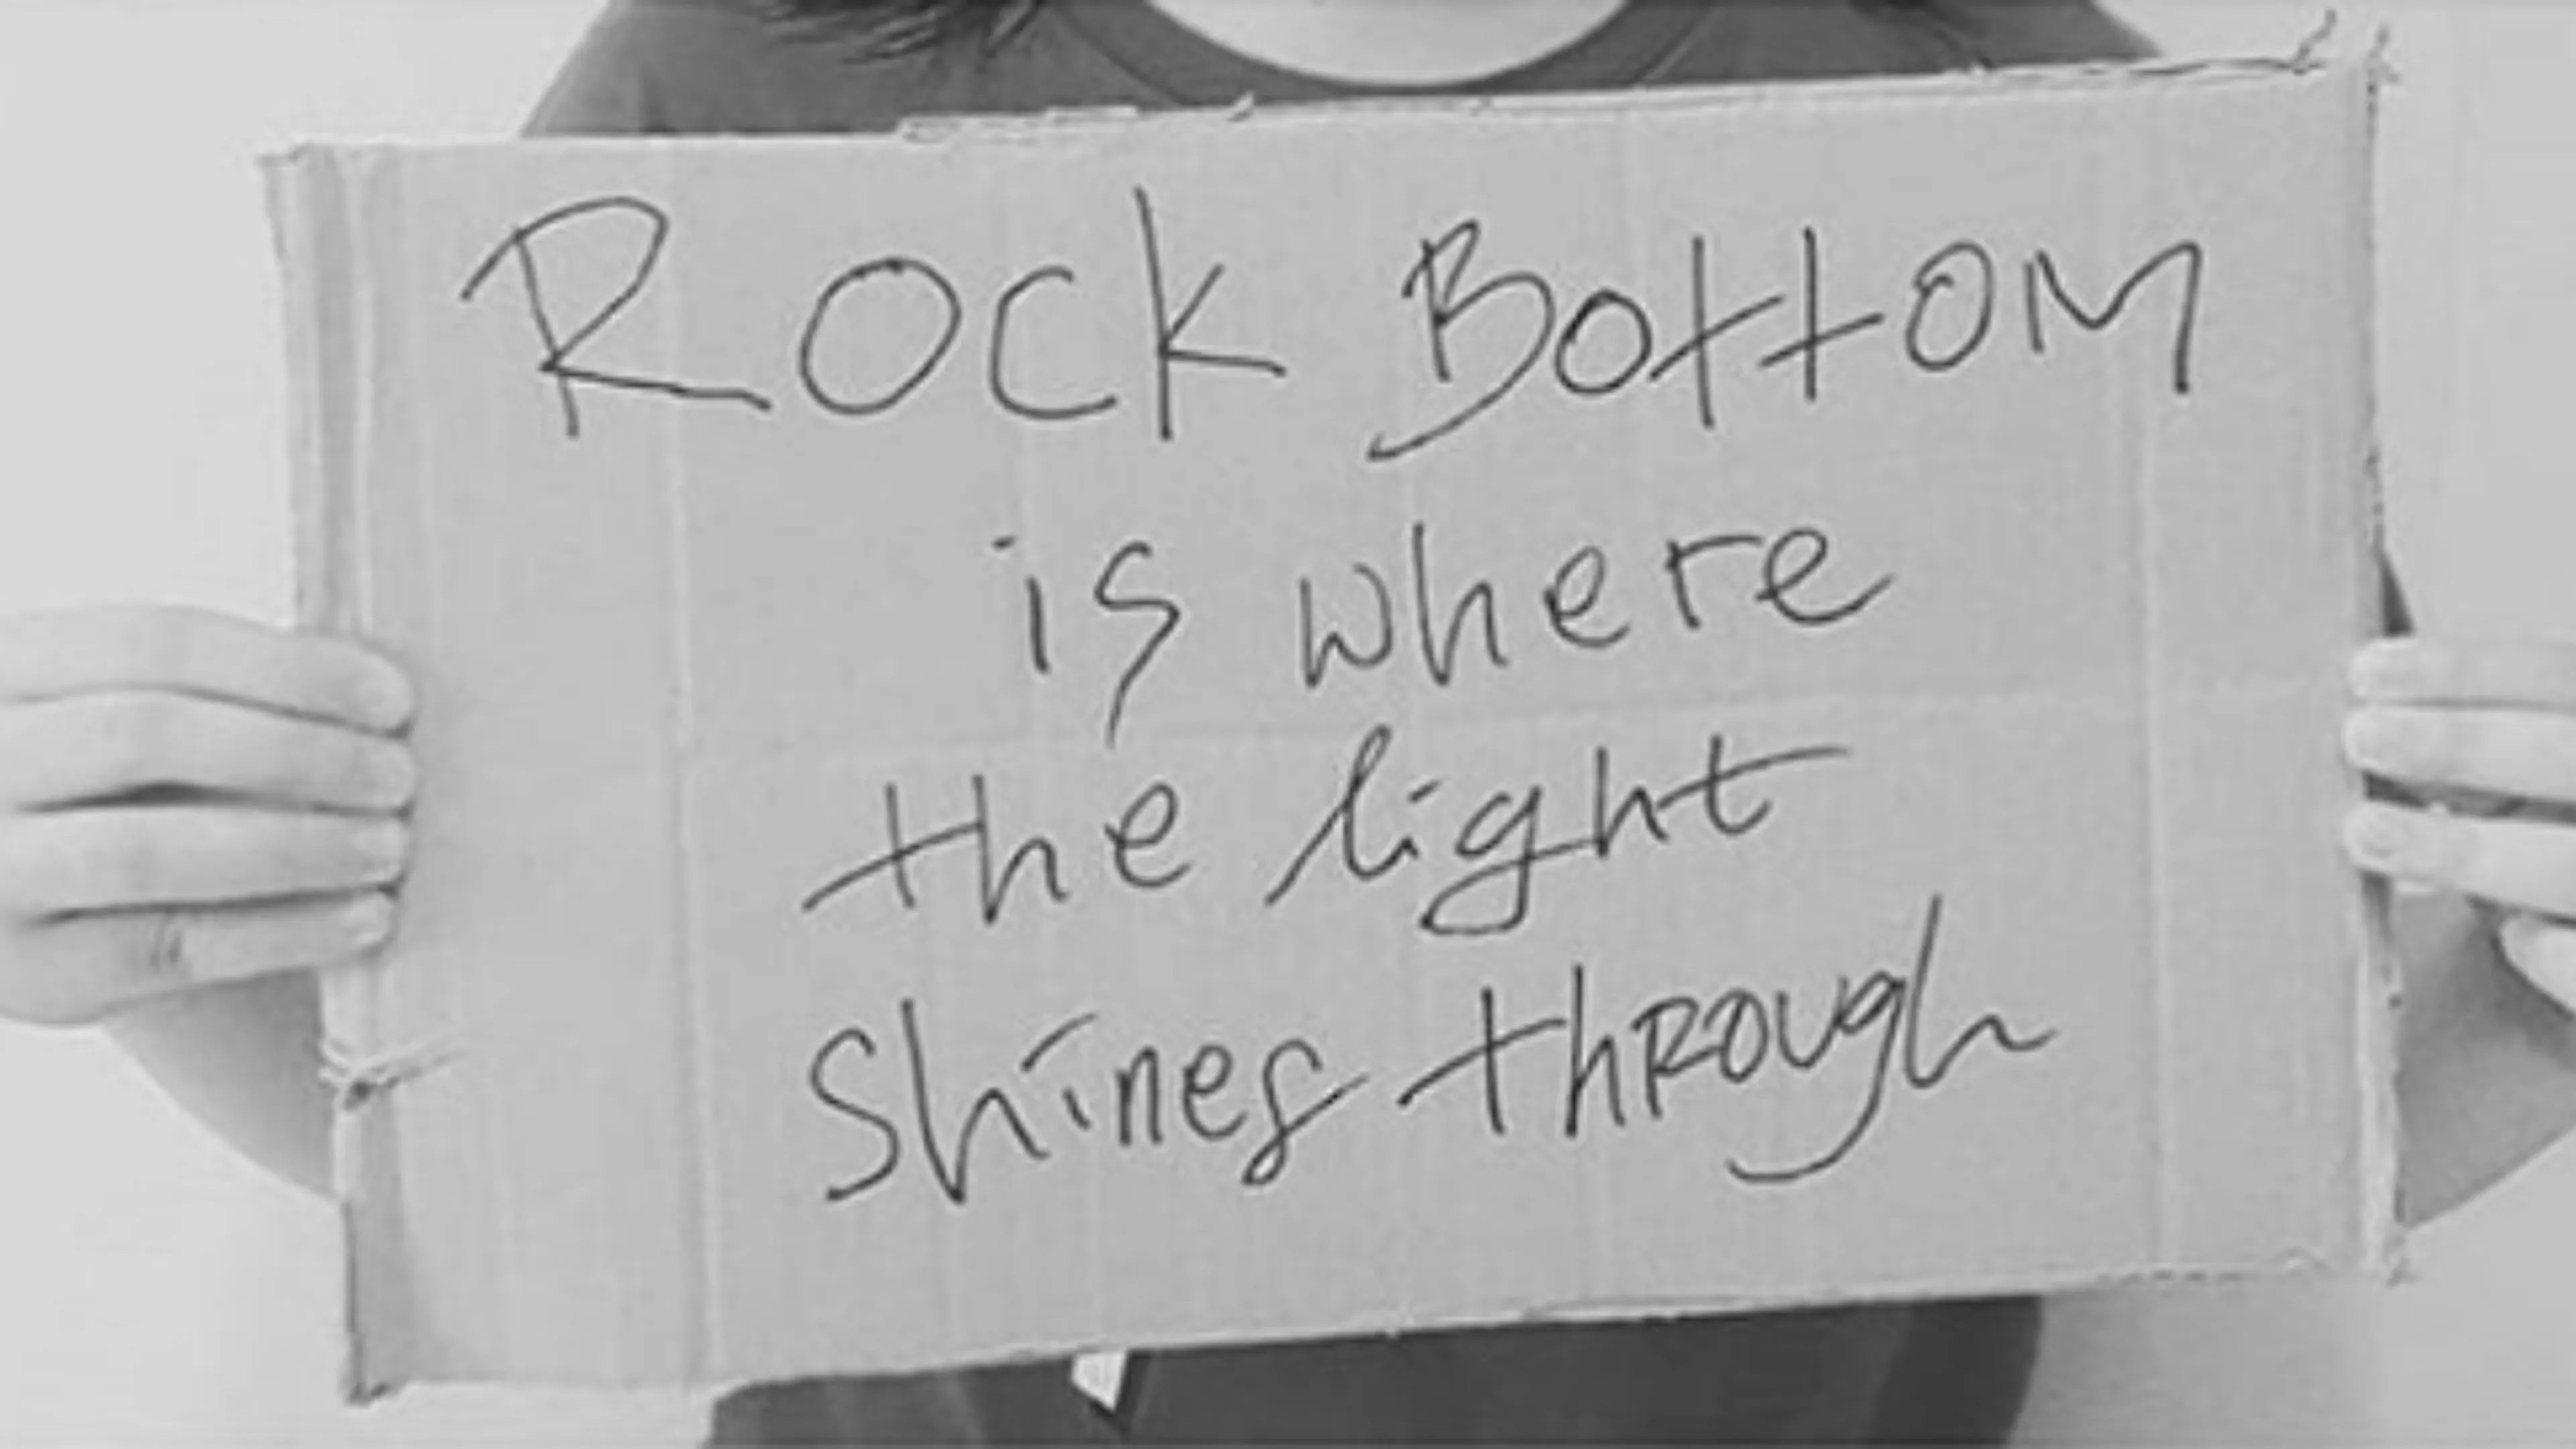 ROCK BOttOM
is where
the light
shines thROUgh